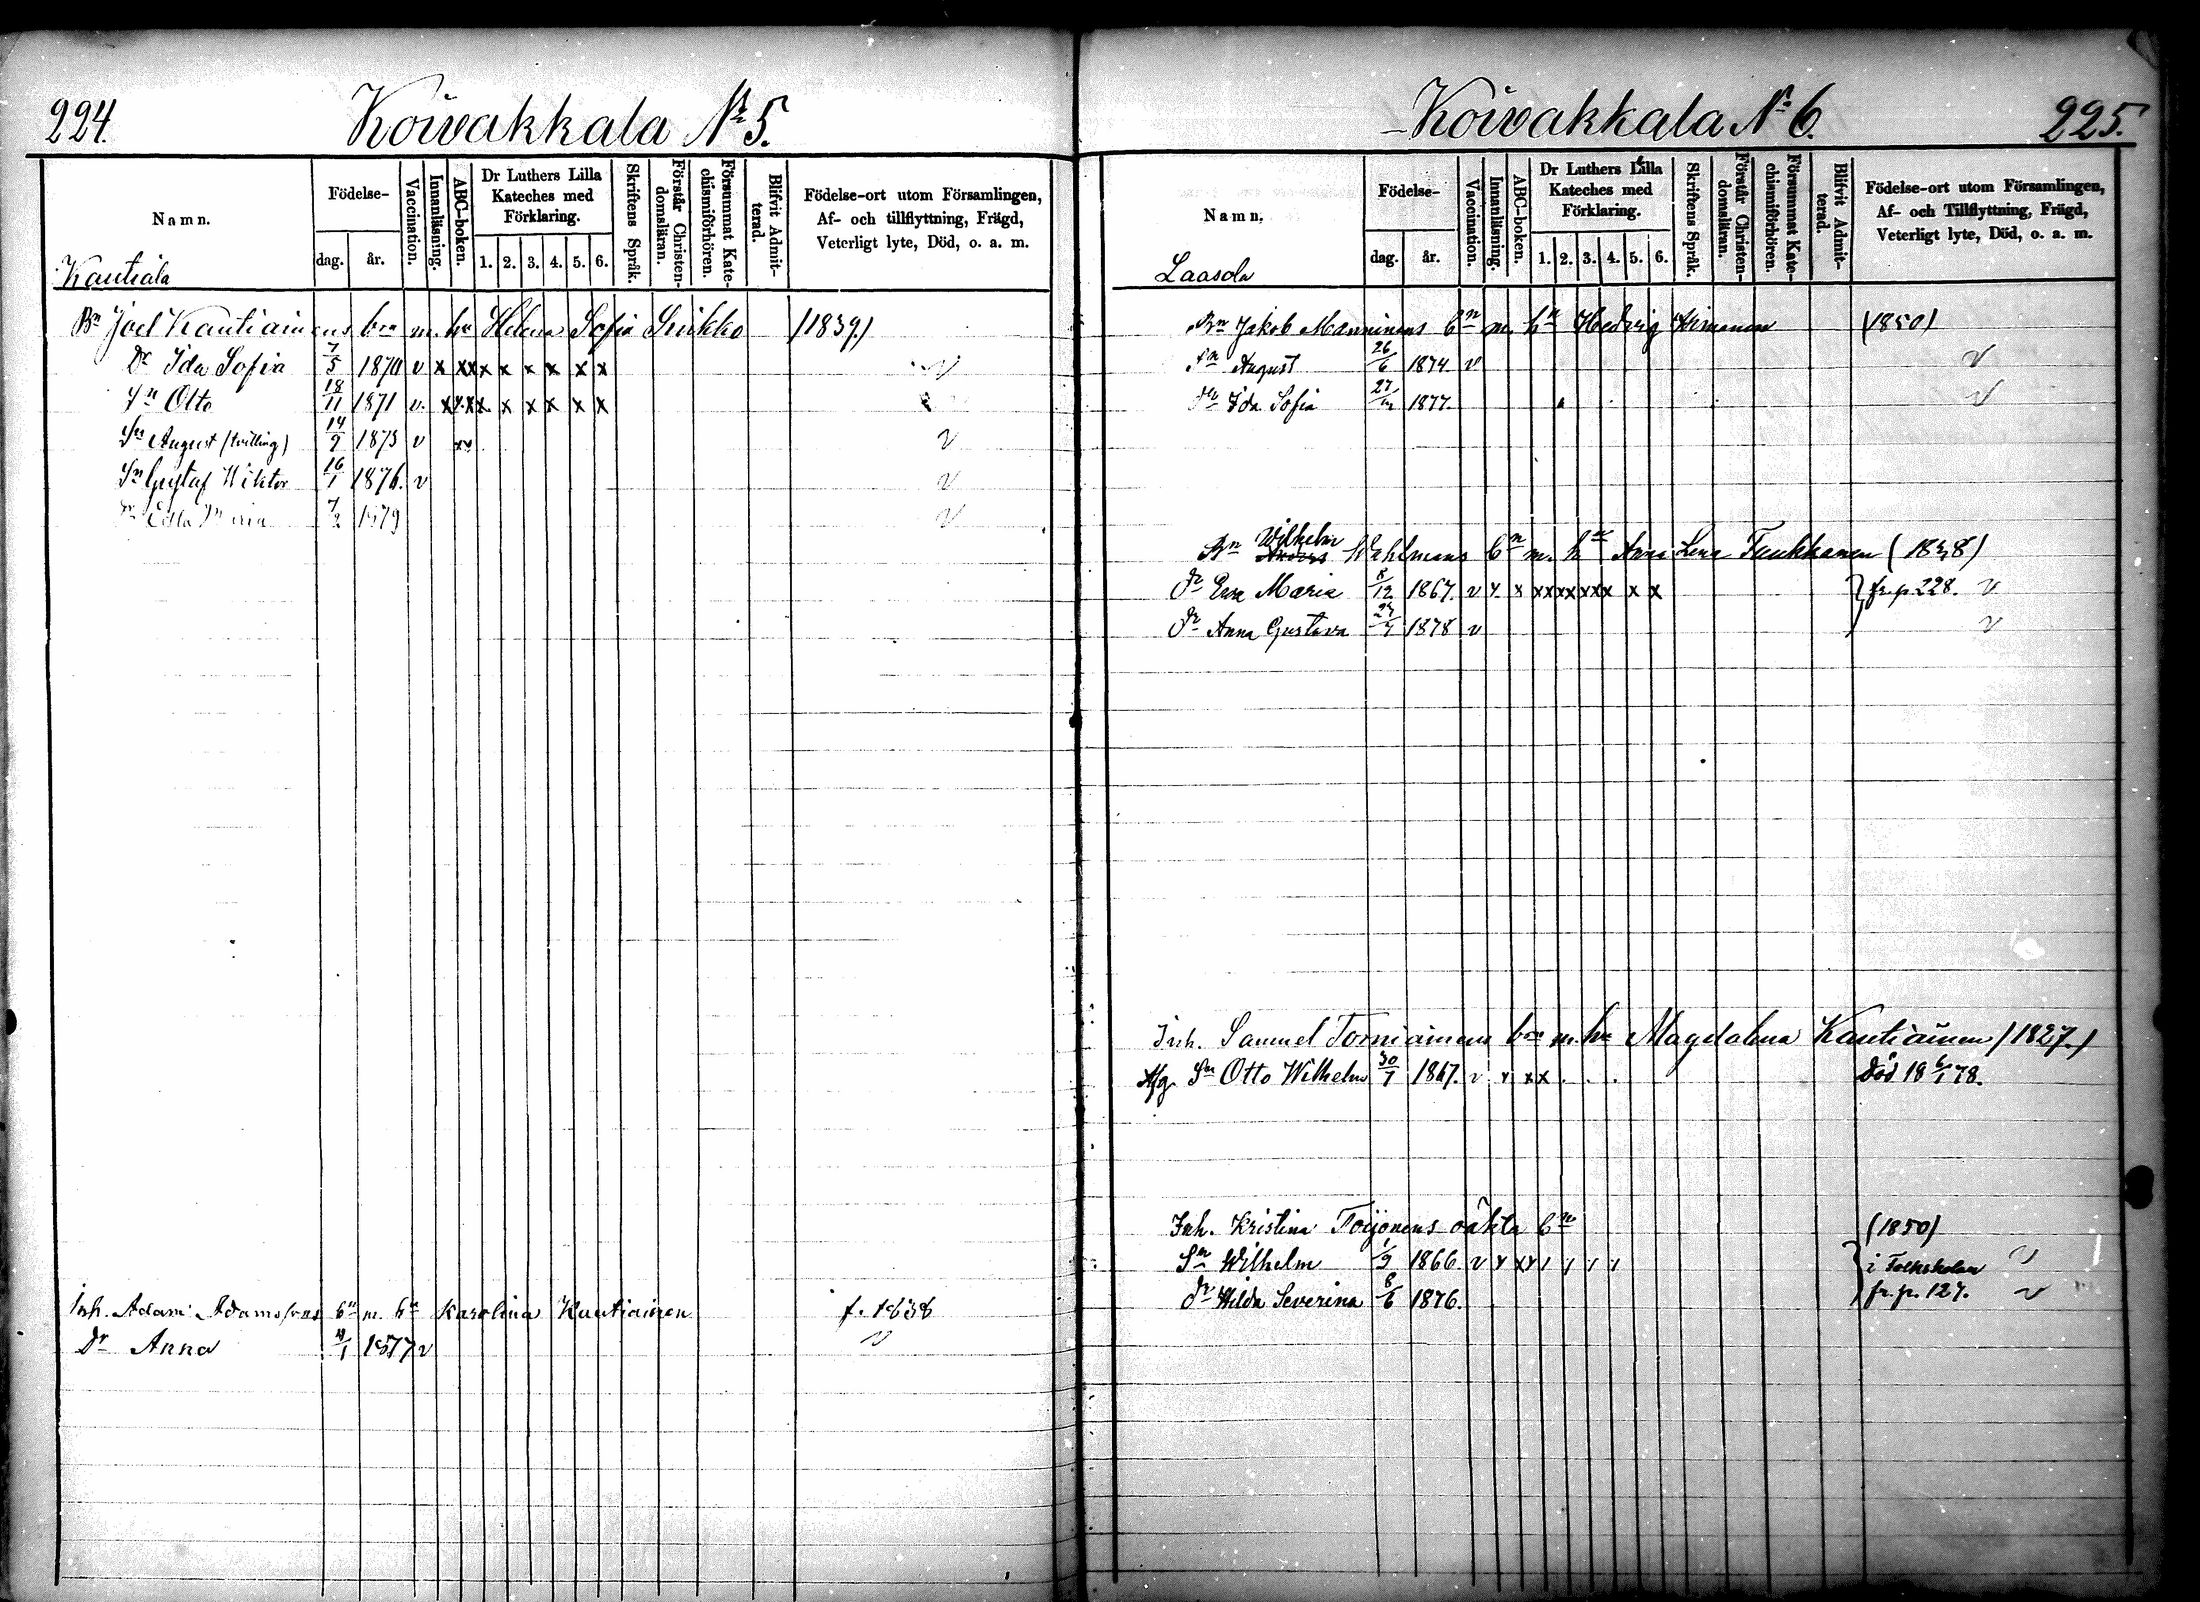 224.
Koivakkala № 5.
Namn.
Födelse-
dag.
år.
Vaccination.
Innanläsning.
ABC-boken.
Dr Luthers Lilla
Kateches med
Förklaring.
1. 2. 3. 4. 5. 6.
Skriftens Språk.
Förstår Christen-
domsläran.
Försummat Kate-
chismiförhören.
Blifvit Admit-
terad.
Födelse-ort utom Församlingen,
Af- och tillflyttning, Frägd,
Veterligt lyte, Död, o. a. m.
Kautiala
Bn Joel Kautiainens bn m. hu Helena Sofia Sinkko (1839)
Dr Ida Sofia 7/5 1870 v x xx x x x x x x v
Sn Otto 18/11 1871 v. x x x x x x x x x
Sn August (tvilling) 14/9 1873 v xx v
Sn Gustaf Wiktor 16/1 1876. v v
Dr Maria 7/2 1879 v
Inh. Adam Adamssons bn m. hu Karolina Kautiainen f. 1838
Dr Anna 1877 v v
Koivakkala № 6.
225.
Namn.
Födelse-
dag.
år.
Vaccination.
Innanläsning.
ABC-boken.
Dr Luthers Lilla
Kateches med
Förklaring.
1. 2. 3. 4. 5. 6.
Skriftens Språk.
Förstår Christen-
domsläran.
Försummat Kate-
chismiförhören.
Blifvit Admit-
terad.
Födelse-ort utom Församlingen,
Af- och Tillflyttning, Frägd,
Veterligt lyte, Död, o. a. m.
Laasola
Bn Jakob Manninens bn m. hu Hedvig (1850)
Sn August 26/6 1874 v v
Dr Ida Sofia 1877. v
Wilhelm
Bn Anders Wahlmans bn m. hu Anna Lena Tuukkanen (1838)
Dr Eva Maria 8/12 1867. v x x xx xx xxx x x fr. p. 228. v
Dr Anna Gustava 1878 v v
Inh. Samuel Torniainens bn m. hu Magdalena Kautiainen (1827.)
Afg. Sn Otto Wilhelm 30/7 1867. v x xx Död 18 6/1 78.
Inh. Kristina Toijonens oäkta bn (1850)
Sn Wilhelm 1/9 1866. v i Folkskolan v
Dr Hilda Severina 8/6 1876. fr. p. 127. v